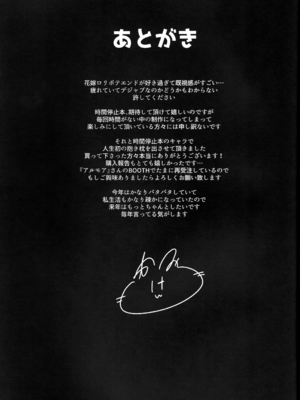 あとがき
花嫁ロリボテエンドが好き過ぎて既視感がすごい…
疲れていてデジャブなのかどうかもわからない
許してください
時間停止本、期待して頂けて嬉しいのですが
毎回時間がない中の制作になってしまって
楽しみにして頂いている方々には申し訳ないです
それと時間停止本のキャラで
人生初の抱き枕を出させて頂きました
買って下さった方々本当にありがとうございます!
購入報告もとても嬉しかったです…
『アルモア』さんのBOOTHでたまに再受注しているので
もしご興味ありましたらよろしくお願い致します
今年はかなりバタバタしていて
私生活もかなり疎かになっていたので
来年はもっとちゃんとしたいです
毎年言ってる気がします